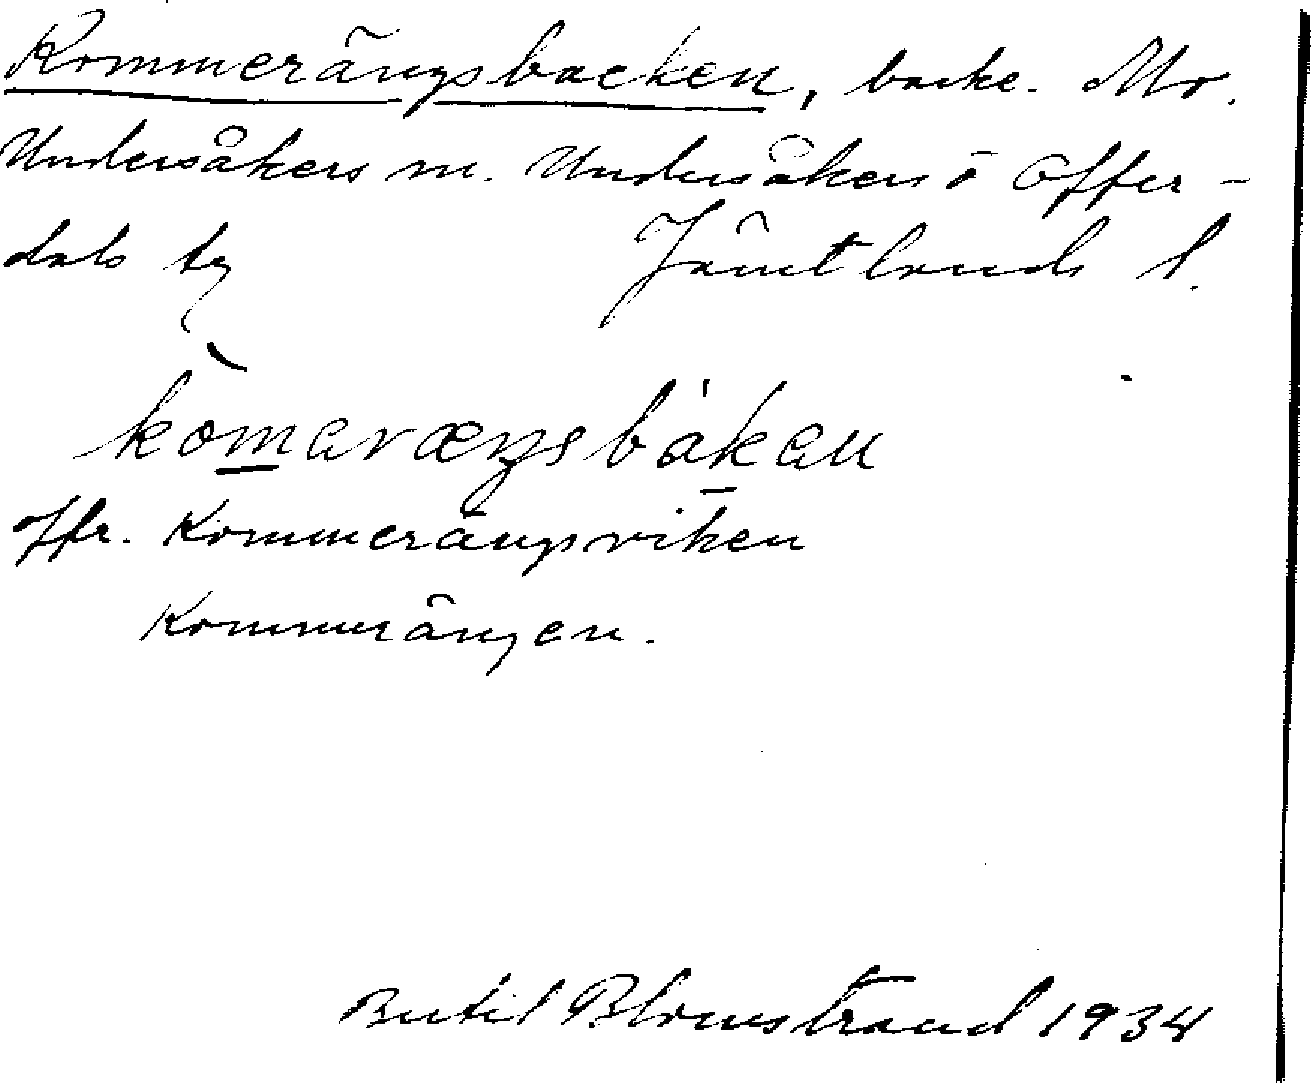 Kommerängsbacken, backe. Mo.
Undersåkers sn. Undersåkers o Offer-
dals tg Jämtlands l.
kòmaræŋsbákan
jfr. Kommerängsviken
Kommerängen.
Bertil Blomstrand 1934